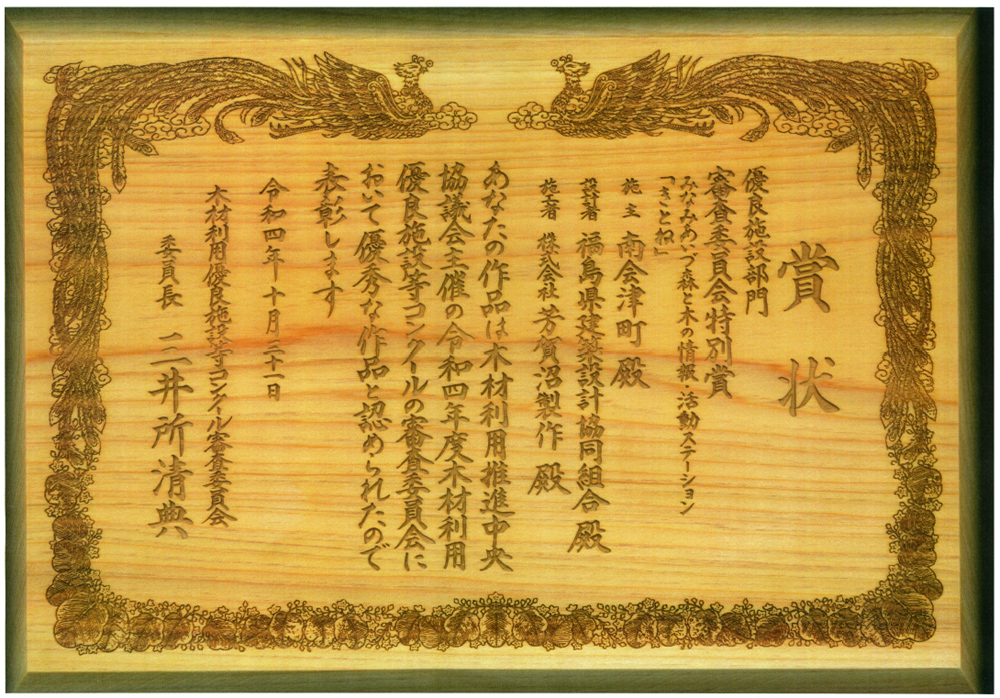 賞状
優良施設部門
審査委員会特別賞
みなみあいづ森と木の情報・活動ステーション
「きとね」
施主 南会津町 殿
設計者 福島県建築設計協同組合 殿
施工者 株式会社芳賀沼製作 殿
あなたの作品は木材利用推進中央
協議会主催の令和四年度木材利用
優良施設等コンクールの審査委員会に
おいて優秀な作品と認められたので
表彰します
令和四年十月三十一日
木材利用優良施設等コンクール審査委員会
委員長 三井所清典